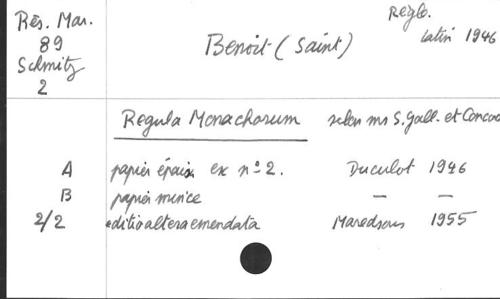 Rés. Mar.
89
Schmitz
2
Benoit (Saint)
Règle.
latin 1946
Regula Monachorum selon ms S. Gall. et Concor
A papier épais ex n° 2. Duculot 1946
B papier mince — —
2/2 editio altera emendata Maredsous 1955